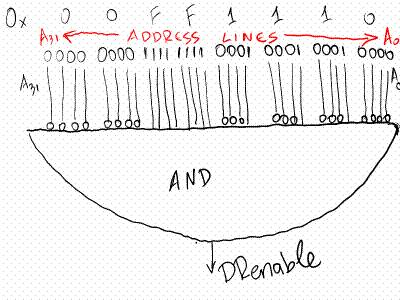 0x 0 0 F F 1 1 1 0
A31 ADDRESS LINES A0
0000 0000 1111 1111 0001 0001 0001 0000
A31 A0
AND
DRenable